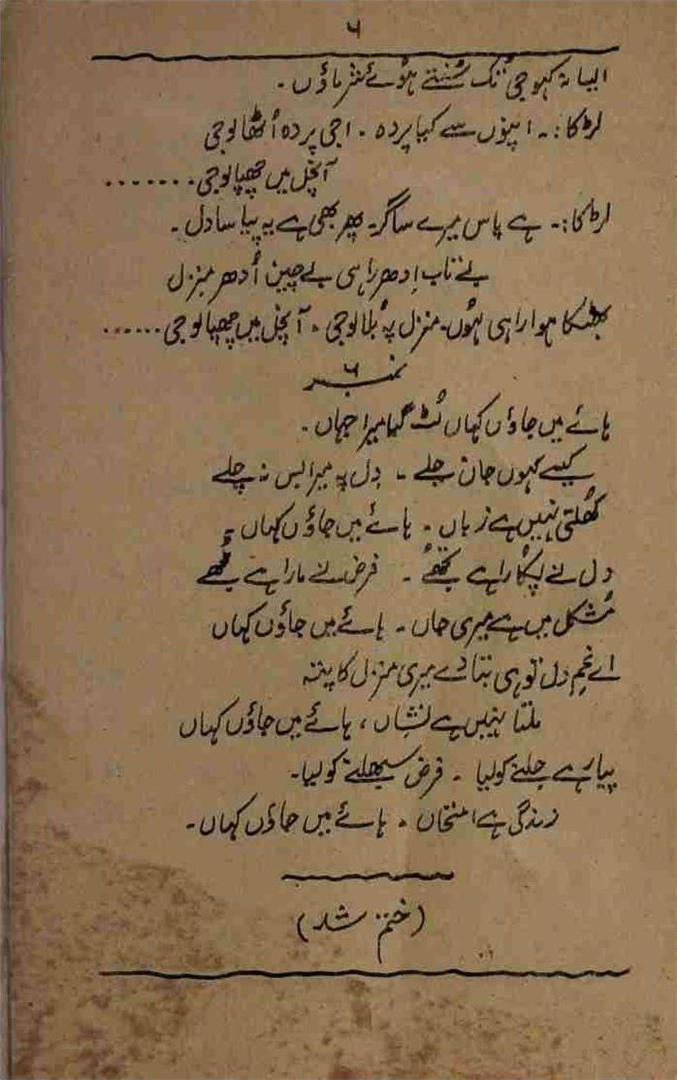 ۶
ایسا نہ کہو جی تک سُنتے ہوئے شرماؤں ۔
لڑکا:۔ اپنوں سے کیا پردہ ۔ اجی پردہ اُٹھا لو جی
آنچل میں چھپا لو جی.......
لڑکا:۔ ہے پاس میرے ساگر۔ پھر بھی ہے یہ پیاسا دل ۔
بے تاب اِدھر راہی بے چین اُدھر منزل
بھٹکا ہوا راہی ہُوں۔ منزل پہ بُلا لو جی ۔ آنچل میں چھپا لو جی......
نمبر ۶
ہائے میں جاؤں کہاں لُٹ گیا میرا جہاں ۔
کیسے کہوں جان جلے ۔ دِل پہ میرا بس نہ چلے
کھُلتی نہیں ہے زباں ۔ ہائے میں جاؤں کہاں ۔
دل نے پکارا ہے تجھے ۔ فرض نے مارا ہے مُجھے
مُشکل میں ہے میری جاں ۔ ہائے میں جاؤں کہاں
اے غمِ دل تو ہی بتا دے میری منزل کا پتہ
ملتا نہیں ہے نشاں ، ہائے میں جاؤں کہاں
پیار ہے جلنے کو لیا ۔ فرض سمبھلنے کو لیا۔
زندگی ہے امتحاں ۔ ہائے میں جاؤں کہاں۔
(ختم شد)